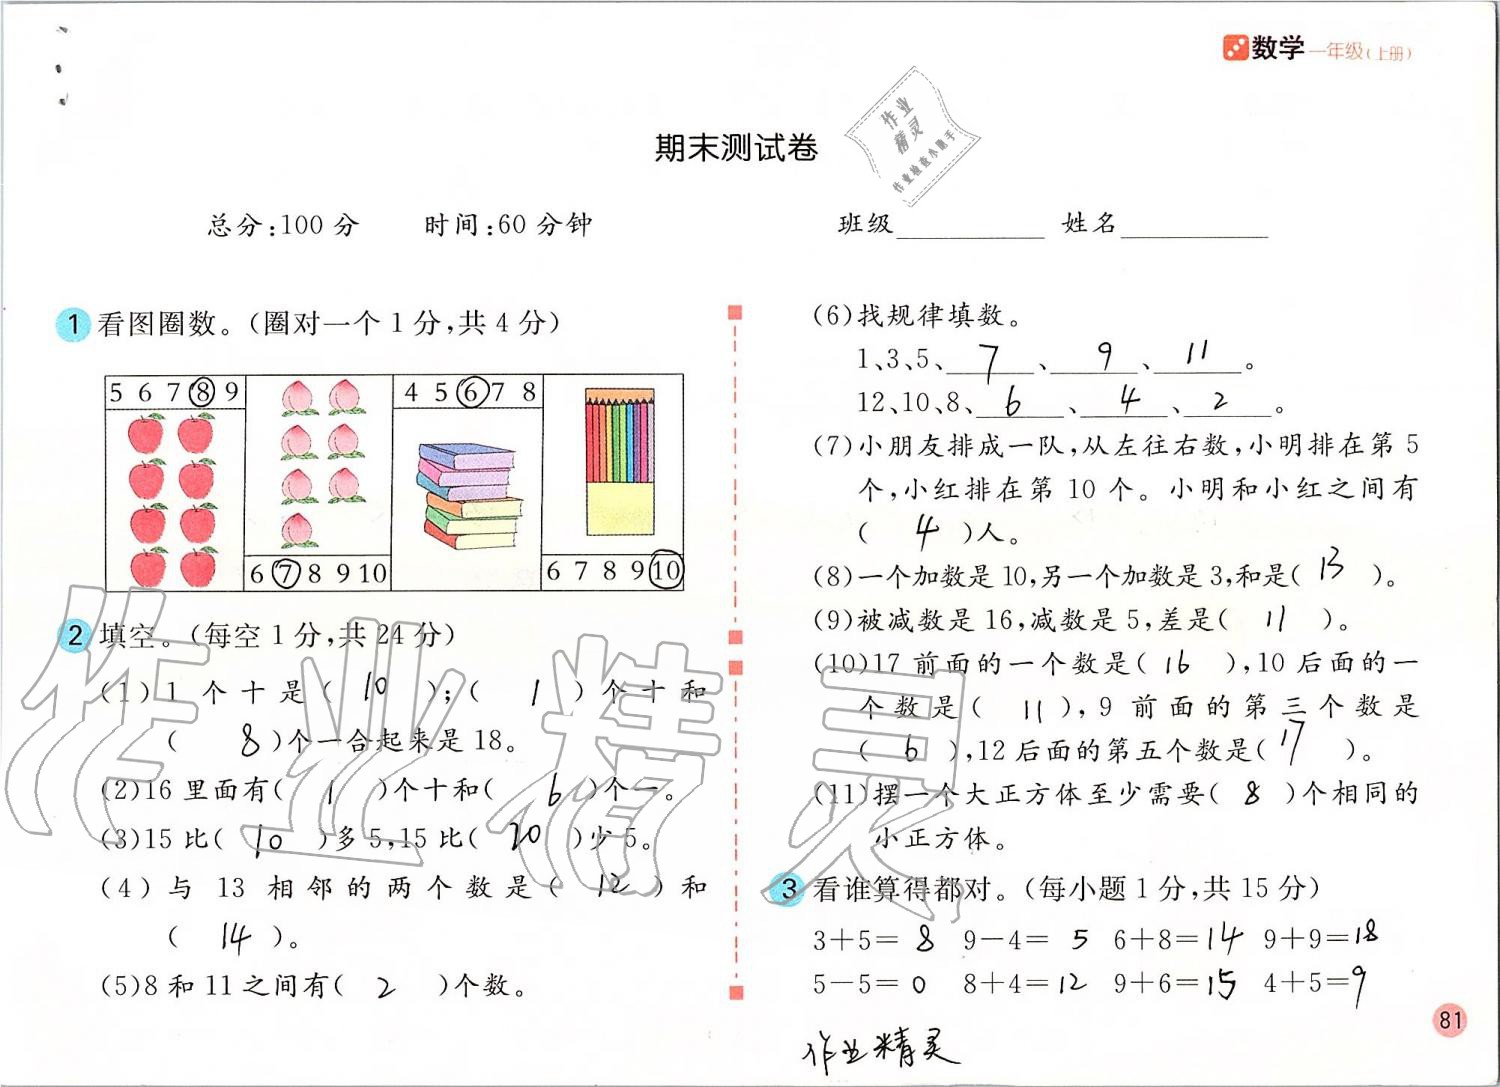 数学一年级(上册)
期末测试卷
作业
精灵
作业检查小助手
总分:100分 时间:60分钟 班级 姓名
1 看图圈数。(圈对一个1分,共4分)
5 6 7 8 9
6 7 8 9 10
4 5 6 7 8
6 7 8 9 10
2 填空。(每空1分,共24分)
(1)1个十是( 10 );( 1 )个十和
( 8 )个一合起来是18。
(2)16里面有( 1 )个十和( 6 )个一。
(3)15比( 10 )多5,15比( 20 )少5。
(4)与13相邻的两个数是( 12 )和
( 14 )。
(5)8和11之间有( 2 )个数。
(6)找规律填数。
1、3、5、7、9、11。
12、10、8、6、4、2。
(7)小朋友排成一队,从左往右数,小明排在第5
个,小红排在第10个。小明和小红之间有
( 4 )人。
(8)一个加数是10,另一个加数是3,和是( 13 )。
(9)被减数是16,减数是5,差是( 11 )。
(10)17前面的一个数是( 16 ),10后面的一
个数是( 11 ),9前面的第三个数是
( 6 ),12后面的第五个数是( 17 )。
(11)摆一个大正方体至少需要( 8 )个相同的
小正方体。
3 看谁算得都对。(每小题1分,共15分)
3+5=8 9-4=5 6+8=14 9+9=18
5-5=0 8+4=12 9+6=15 4+5=9
作业精灵
作业精灵
81